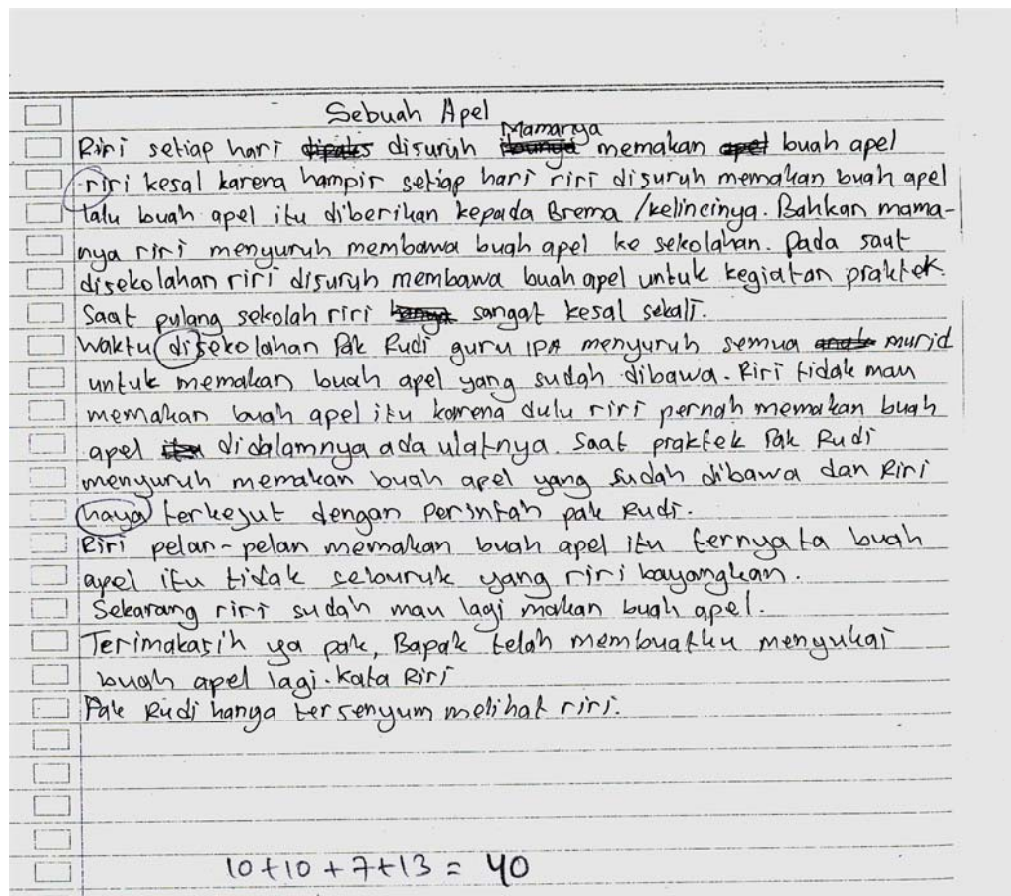 Sebuah Apel
Mamanya
Riri setiap hari dipaks disuruh ibunya memakan apel buah apel
riri kesal karena hampir setiap hari riri disuruh memakan buah apel
lalu buah apel itu diberikan kepada Brema /kelincinya. Bahkan mama-
nya riri menyuruh membawa buah apel ke sekolahan. Pada saat
disekolahan riri disuruh membawa buah apel untuk kegiatan praktek.
Saat pulang sekolah riri hanya sangat kesal sekali.
Waktu disekolahan Pak Rudi guru IPA menyuruh semua anak murid
untuk memakan buah apel yang sudah dibawa. Riri tidak mau
memakan buah apel itu karena dulu riri pernah memakan buah
apel itu didalamnya ada ulatnya. Saat praktek Pak Rudi
menyuruh memakan buah apel yang sudah dibawa dan Riri
haya terkejut dengan perintah pak Rudi.
Riri pelan-pelan memakan buah apel itu ternyata buah
apel itu tidak seburuk yang riri bayangkan.
Sekarang riri sudah mau lagi makan buah apel.
Terimakasih ya pak, Bapak telah membuatku menyukai
buah apel lagi. Kata Riri
Pak Rudi hanya tersenyum melihat riri.
10+10+7+13 = 40